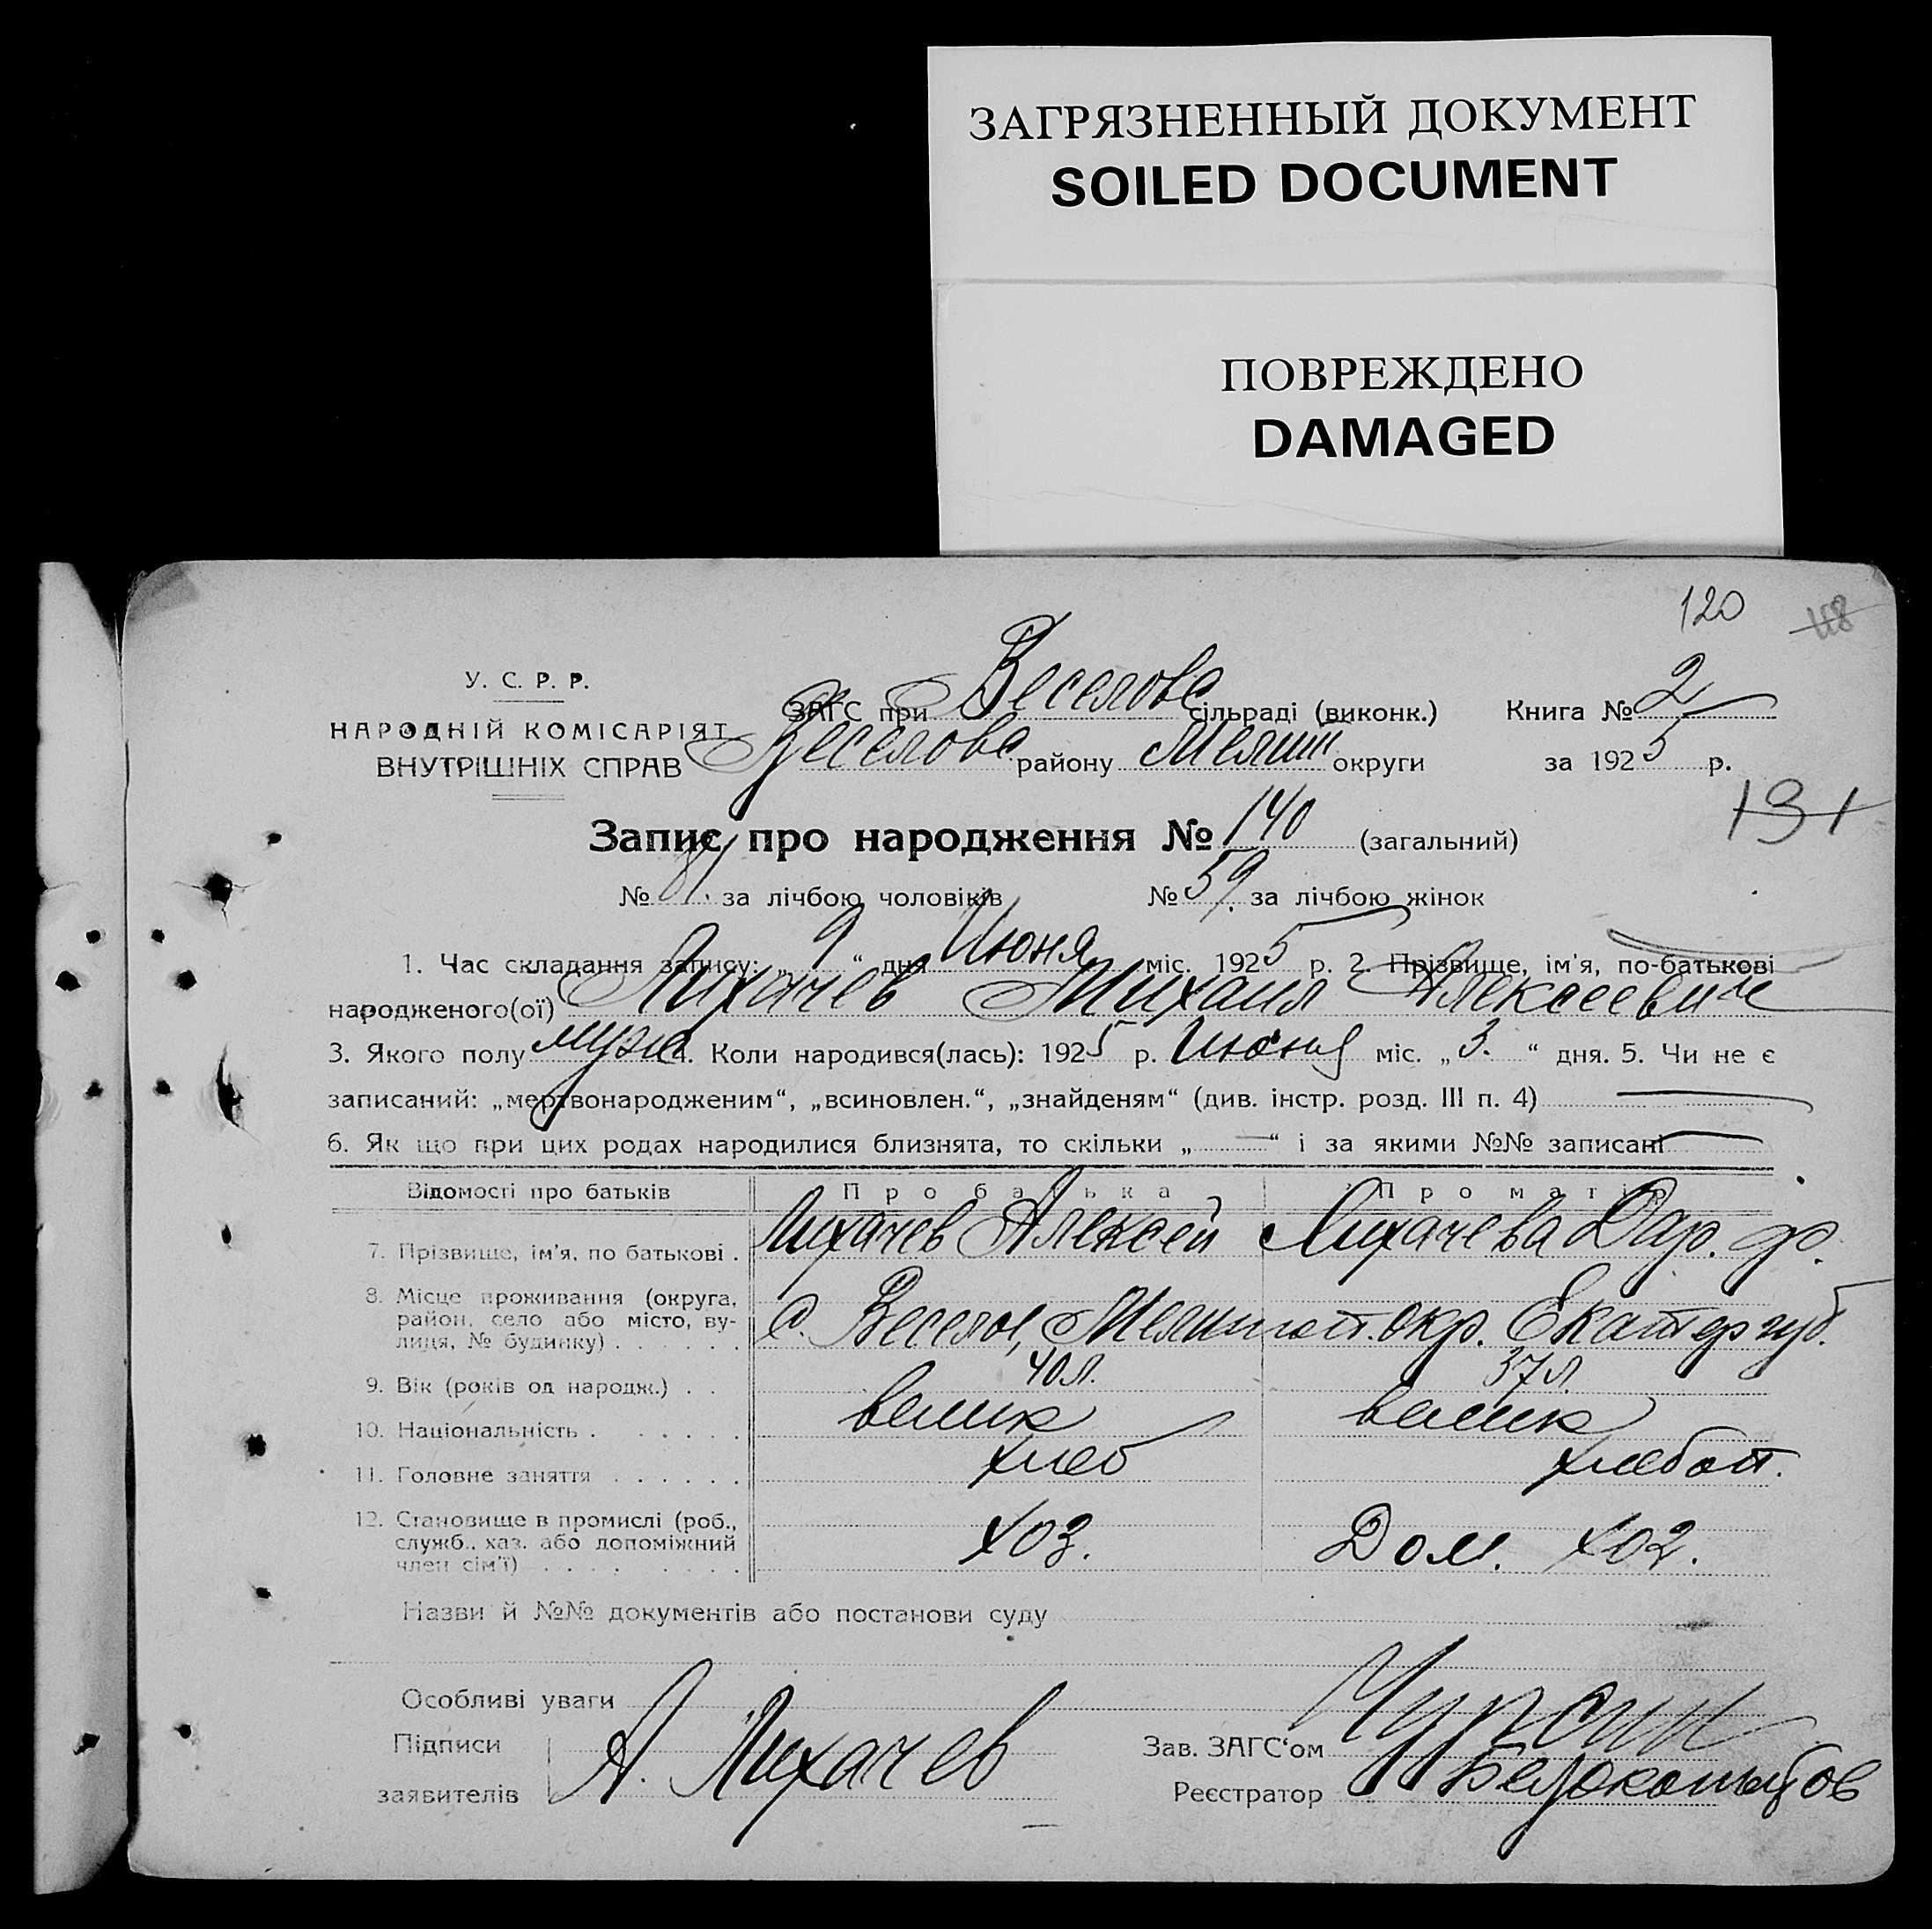 ЗАГРЯЗНЕННЫЙ ДОКУМЕНТ
SOILED DOCUMENT
ПОВРЕЖДЕНО
DAMAGED
120 118
У. С. Р. Р.
НАРОДНІЙ КОМІСАРІЯТ
ВНУТРІШНІХ СПРАВ
ЗАГС при Веселовс сільраді (виконк.) Книга № 2
Веселовс району Мелит округи за 1925 р.
131
Запис про народження № 140 (загальний)
№ 81. за лічбою чоловіків № 59. за лічбою жінок
1. Час складання запису: „ 9 “ дня Июня міс. 1925 р. 2. Прізвище, ім'я, по-батькові
народженого(ої) Лихачев Михаил Алексеевич
3. Якого полу муж 4. Коли народився(лась): 1925 р. Июня міс. „ 3. “ дня. 5. Чи не є
записаний: „мертвонародженим“, „всиновлен.“, „знайденям“ (див. інстр. розд. III п. 4)
6. Як що при цих родах народилися близнята, то скільки „ “ і за якими №№ записані
Відомості про батьків Про батька Про матір
7. Прізвище, ім'я, по батькові . Лихачев Алексей Лихачева Дар. ф.
8. Місце проживання (округа, район, село або місто, вулиця, № будинку) с. Веселое, Мелитоп. окр. Екатер губ.
9. Вік (років од народж.) . . 40 л. 37 л.
10. Національність . велик велик
11. Головне заняття хлеб хлебоп.
12. Становище в промислі (роб., служб., хаз. або допоміжний член сім'ї) хоз. Дом. хоз.
Назви й №№ документів або постанови суду
Особливі уваги
Підписи
заявителів А. Лихачев
Зав. ЗАГС‘ом Чурсин
Реєстратор Белокопытов